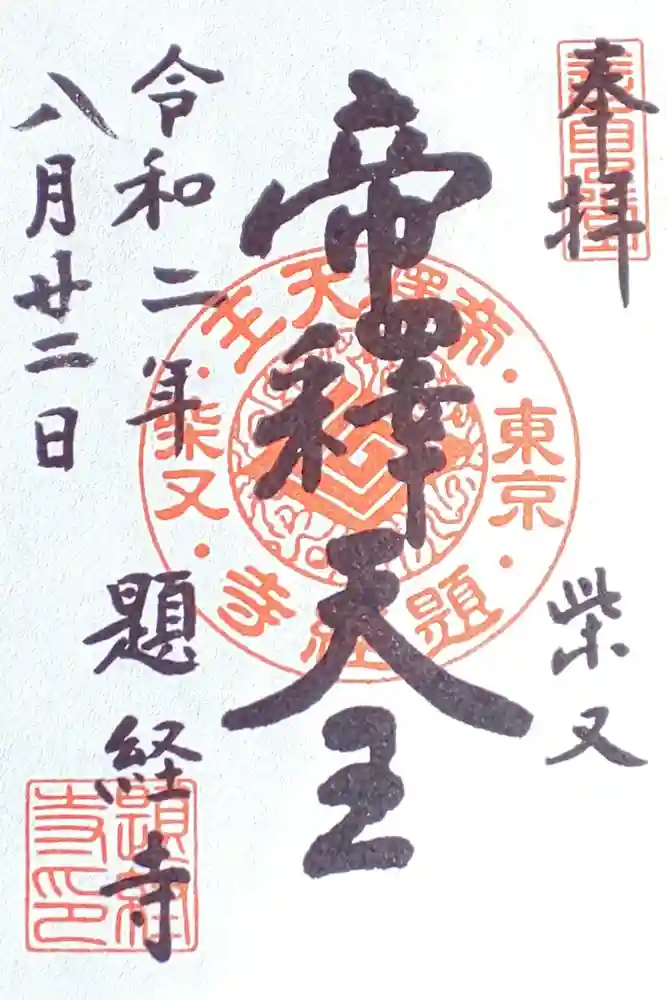 奉拝
柴又
帝釋天王
令和二年
八月廿二日
題経寺
帝釋天王
東京
柴又
題経寺
題経寺印